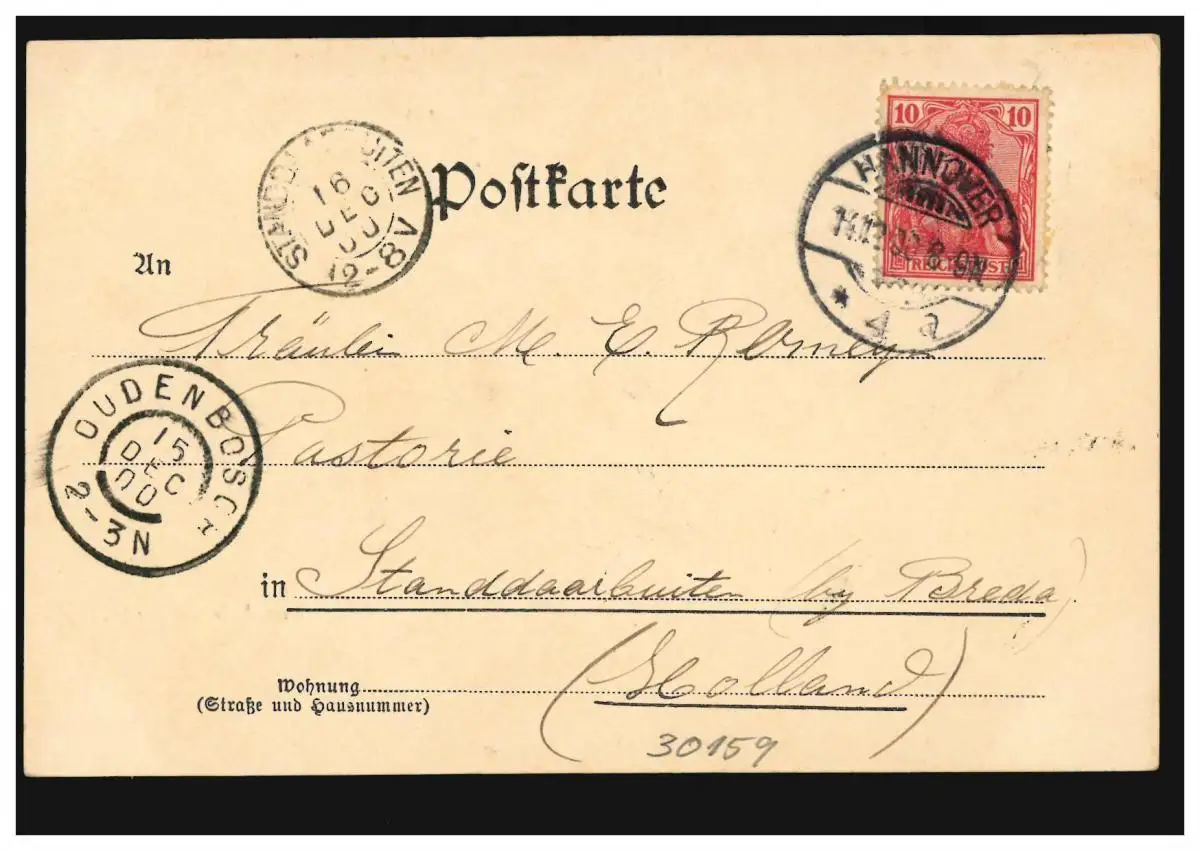 10 10
REICHSPOST
HANNOVER
* 4 a
STANDDAARBUITEN
16
DEC
00
12-8V
Postkarte
An
Fräulein M. E. Romeyn
OUDENBOSCH
15
DEC
00
2-3N
Pastorie
in Standdaarbuiten (by Breda)
(Holland)
Wohnung
(Straße und Hausnummer)
30159